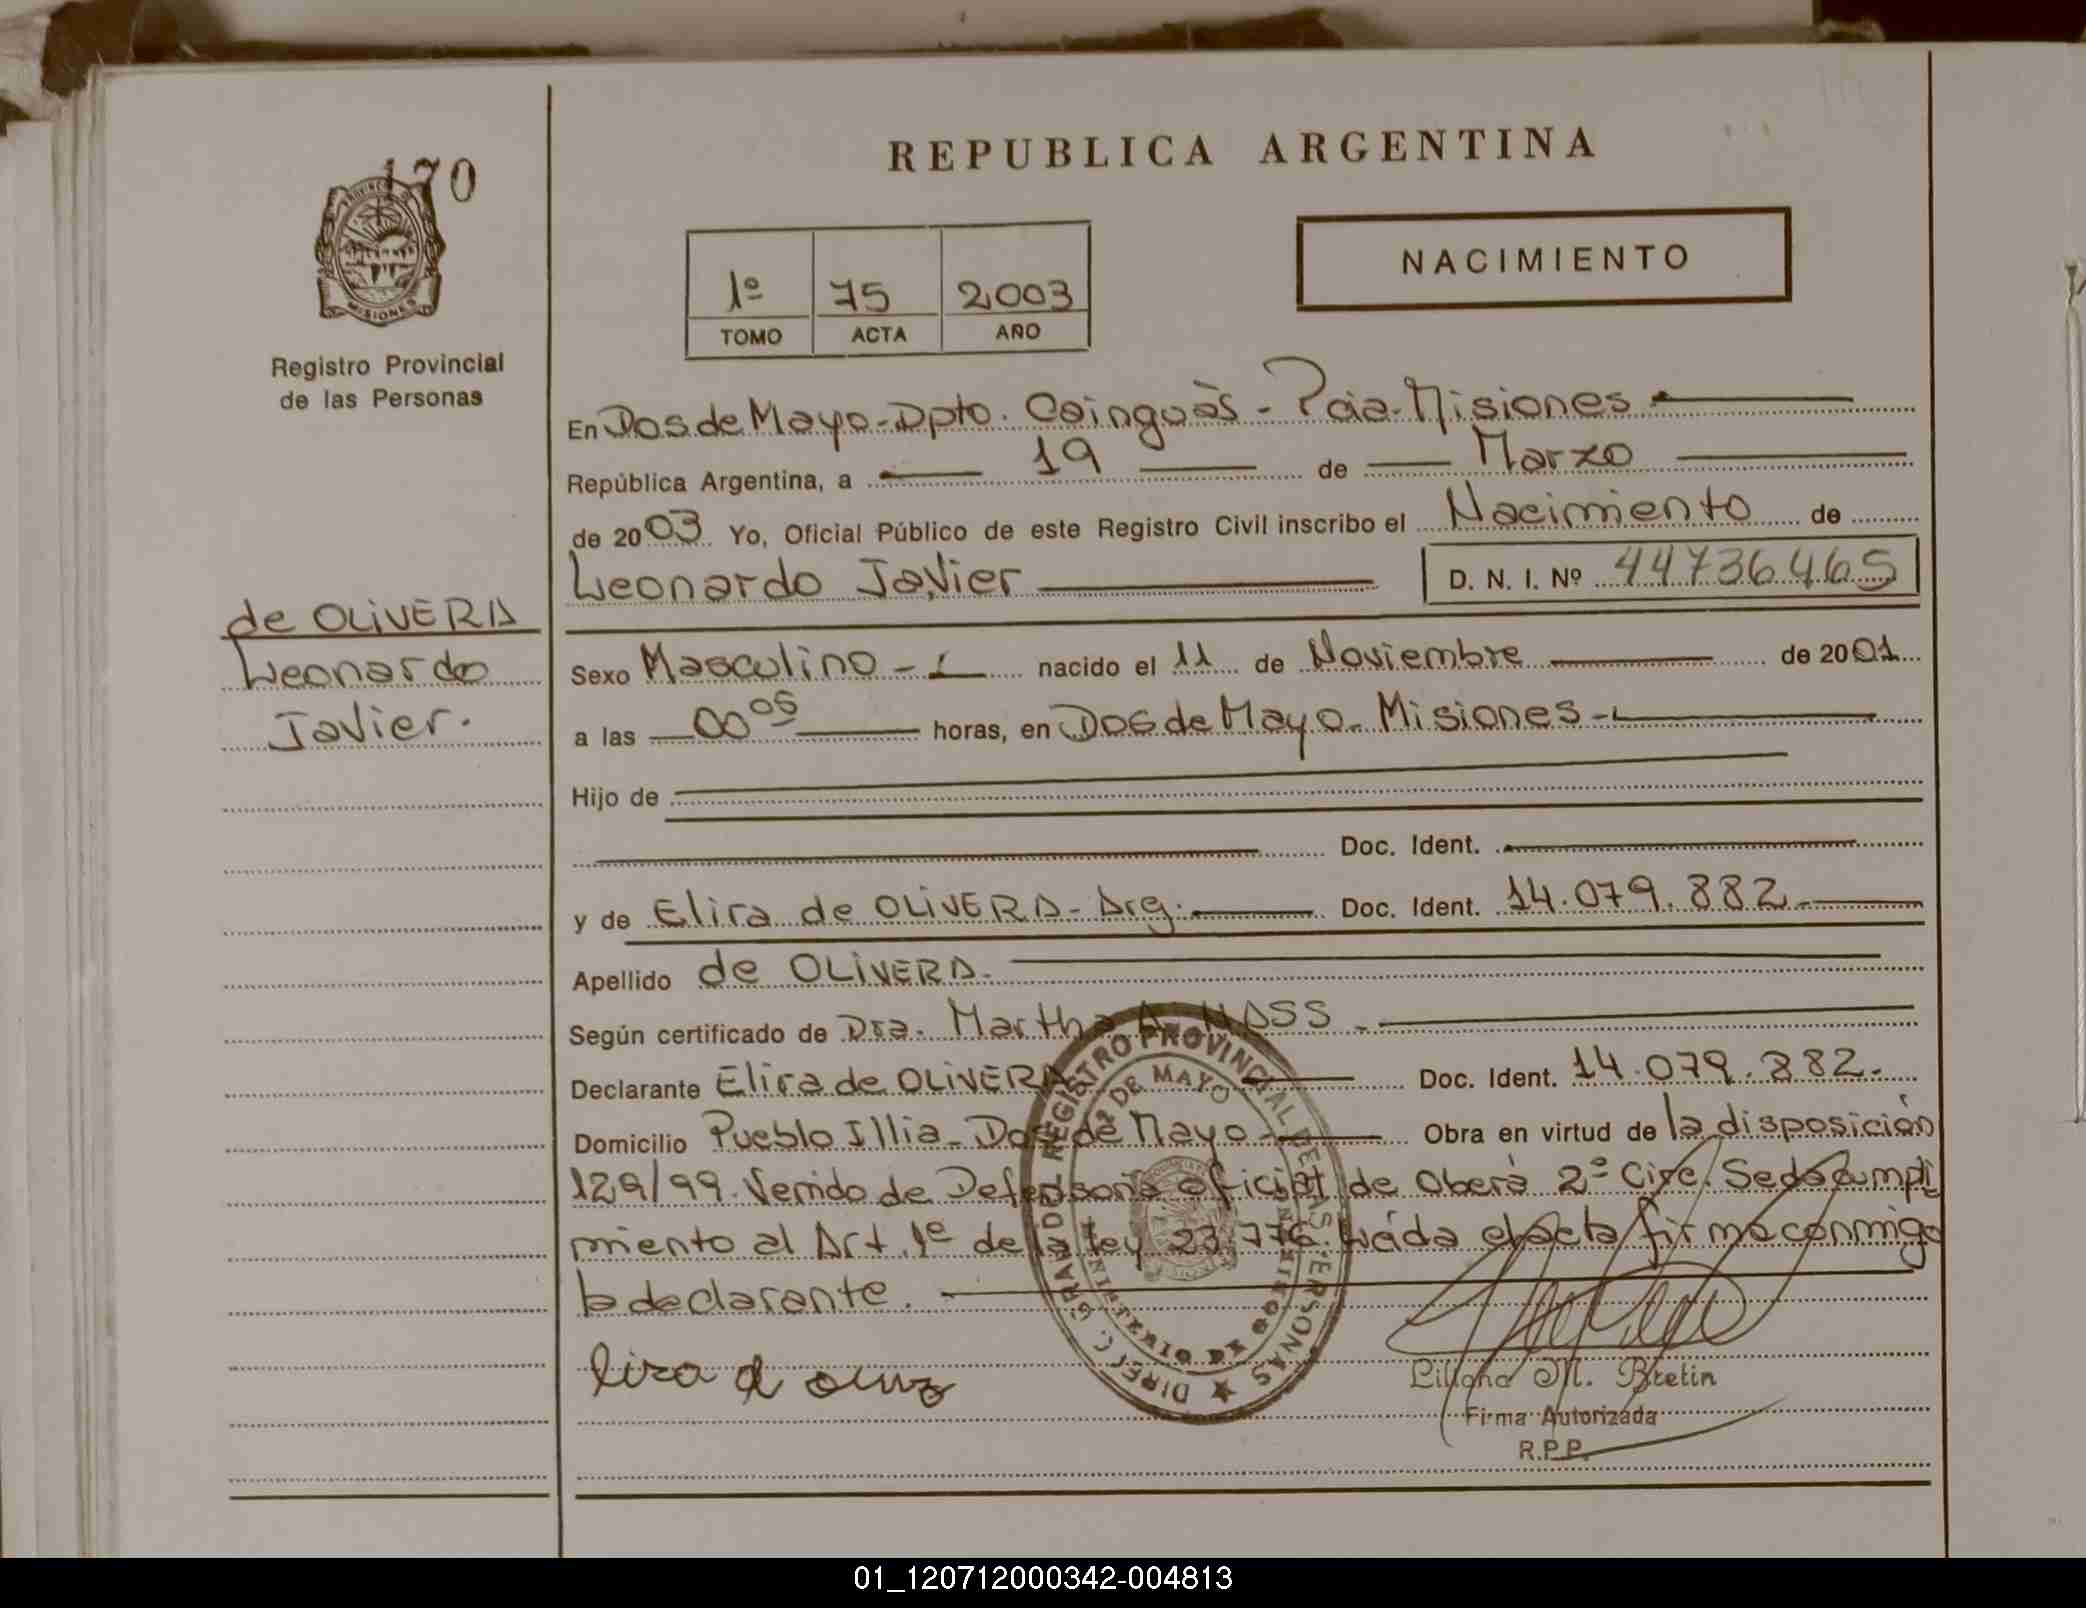 170
REPUBLICA ARGENTINA
NACIMIENTO
1º 75 2003
TOMO ACTA AÑO
MISIONES
Registro Provincial
de las Personas
En Dos de Mayo - Dpto. Cainguàs - Pcia. Misiones
República Argentina, a 19 de Marzo
de 2003 Yo, Oficial Público de este Registro Civil inscribo el Nacimiento de
Leonardo Javier D. N. I. Nº 44736465
de OLIVERA
Leonardo
Javier.
Sexo Masculino - nacido el 11 de Noviembre de 2001
a las 00 05 horas, en Dos de Mayo - Misiones -
Hijo de
Doc. Ident.
y de Elira de OLIVERA - Arg. Doc. Ident. 14.079.882 -
Apellido de OLIVERA.
Según certificado de Dra. Martha A. HASS -
Declarante Elira de OLIVERA Doc. Ident. 14.079.882.
Domicilio Pueblo Illia - Dos de Mayo - Obra en virtud de la disposición
129/99. Venido de Defensoria oficial de Oberà 2º Circ. Se da cumpli
miento al Art. 1º de la Ley 23.776. Leída el acta firma conmigo
la declarante.
DIRECC. GRAL. DE REGISTRO PROVINCIAL DE LAS PERSONAS
2 DE MAYO
Liliana M. Bretin
Firma Autorizada
R.P.P.
01_120712000342-004813